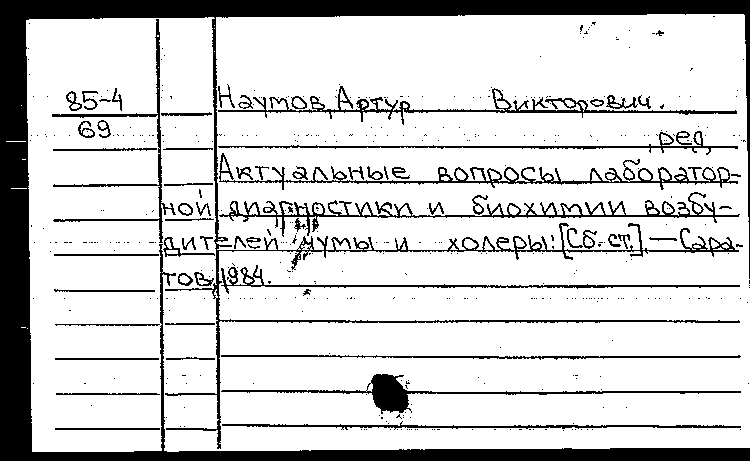 85-4 Наумов, Артур Викторович.
69 , ред.
Актуальные вопросы лаборатор-
ной диагностики и биохимии возбу-
дителей чумы и холеры: [Сб. ст.]. — Сара-
тов, 1984.